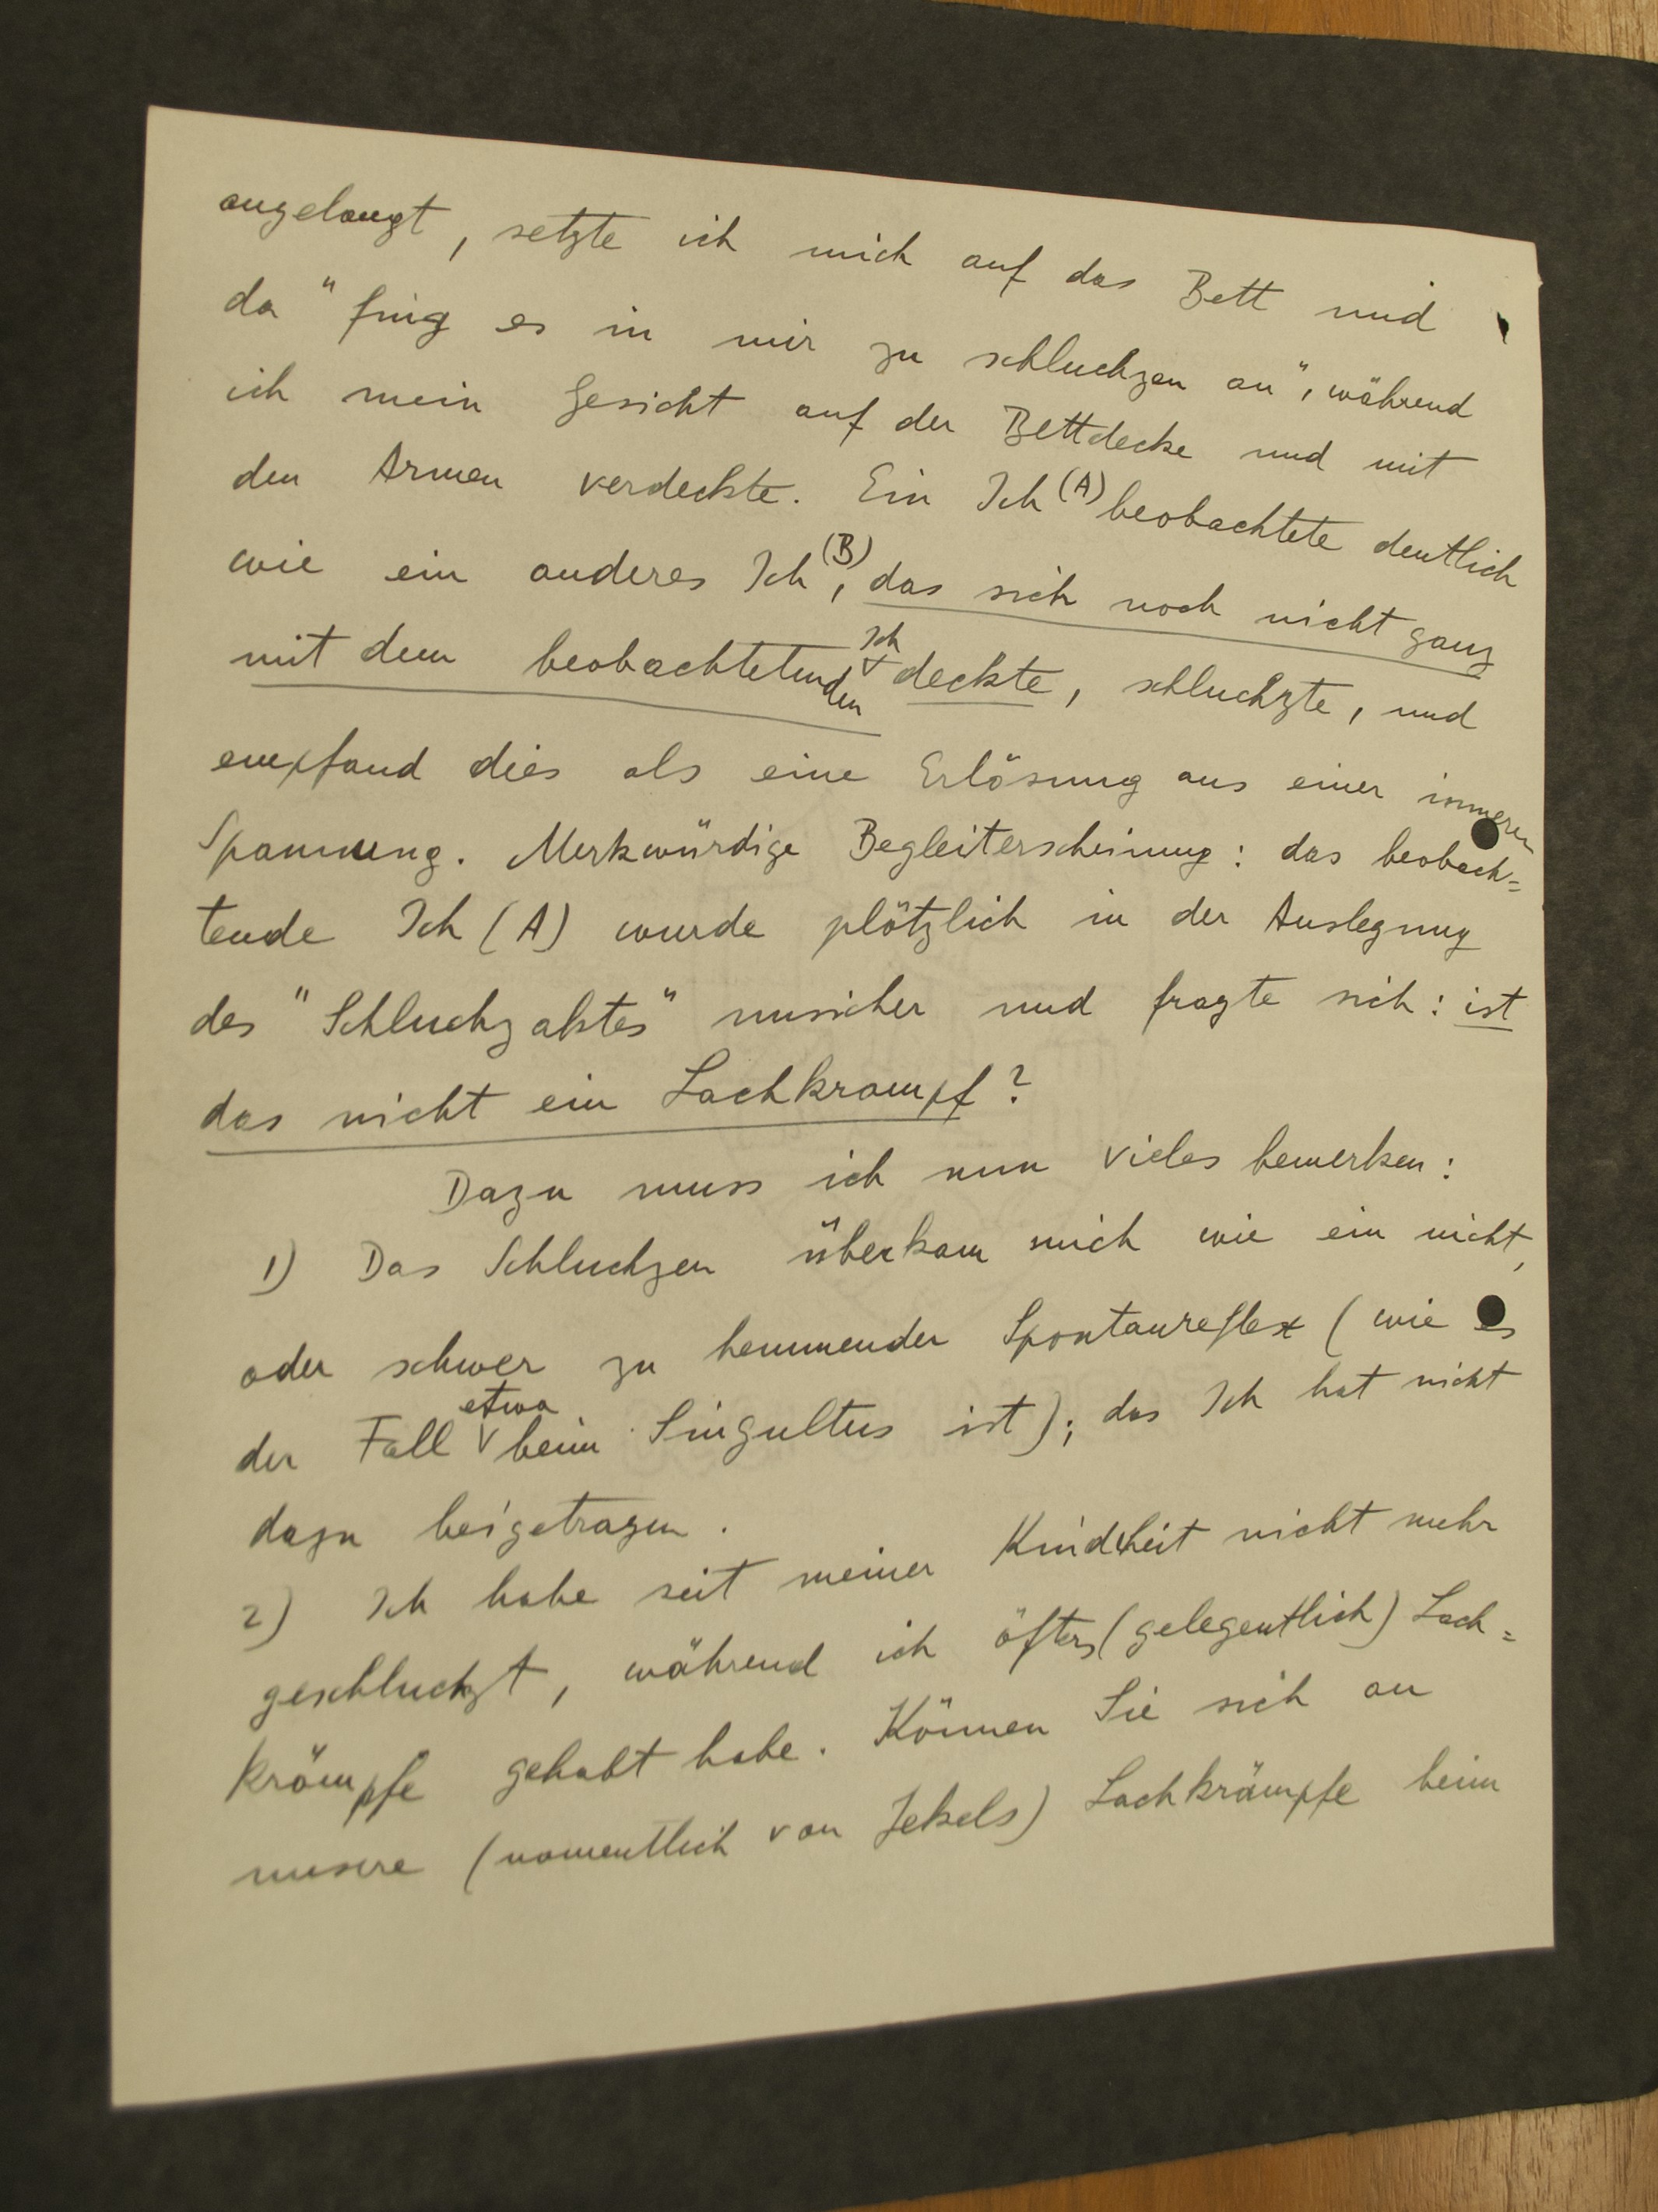 angelangt, setzte ich mich auf das Bett und
da "fing es in mir zu schluchzen an", während
ich mein Gesicht auf der Bettdecke und mit
den Armen verdeckte. Ein Ich (A) beobachtete deutlich
wie ein anderes Ich (B), das sich noch nicht ganz
mit dem beobachtetenden Ich deckte, schluchzte, und
empfand dies als eine Erlösung aus einer inneren
Spannung. Merkwürdige Begleiterscheinung: das beobach=
tende Ich (A) wurde plötzlich in der Auslegung
des "Schluchzaktes" unsicher und fragte sich: ist
das nicht ein Lachkrampf?
Dazu muss ich nun vieles bemerken:
1) Das Schluchzen überkam mich wie ein nicht,
oder schwer zu hemmender Spontanreflex (wie es
der Fall etwa beim Singultus ist); das Ich hat nicht
dazu beigetragen.
2) Ich habe seit meiner Kindheit nicht mehr
geschluchzt, während ich öfters (gelegentlich) Lach=
krämpfe gehabt habe. Können Sie sich an
unsere (namentlich von Jekels) Lachkrämpfe beim